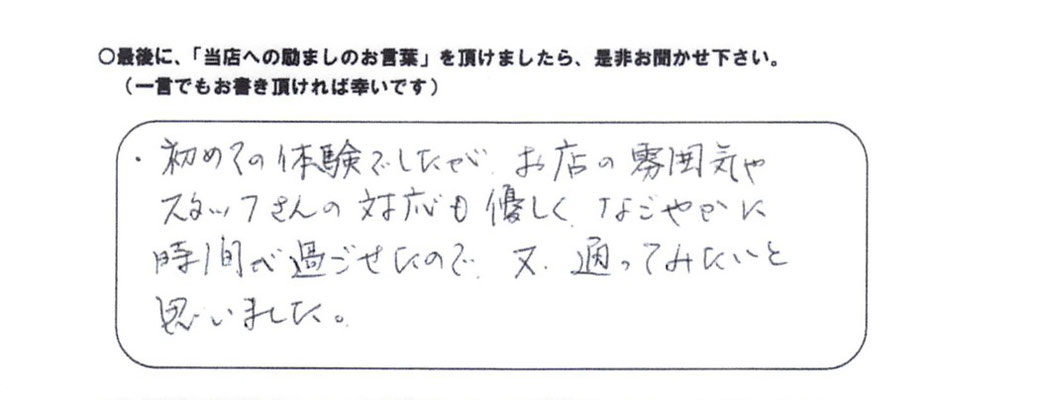 ○最後に、「当店への励ましのお言葉」を頂けましたら、是非お聞かせ下さい。
（一言でもお書き頂ければ幸いです）
・初めての体験でしたが、お店の雰囲気や
スタッフさんの対応も優しく、なごやかに
時間が過ごせたので、又、通ってみたいと
思いました。